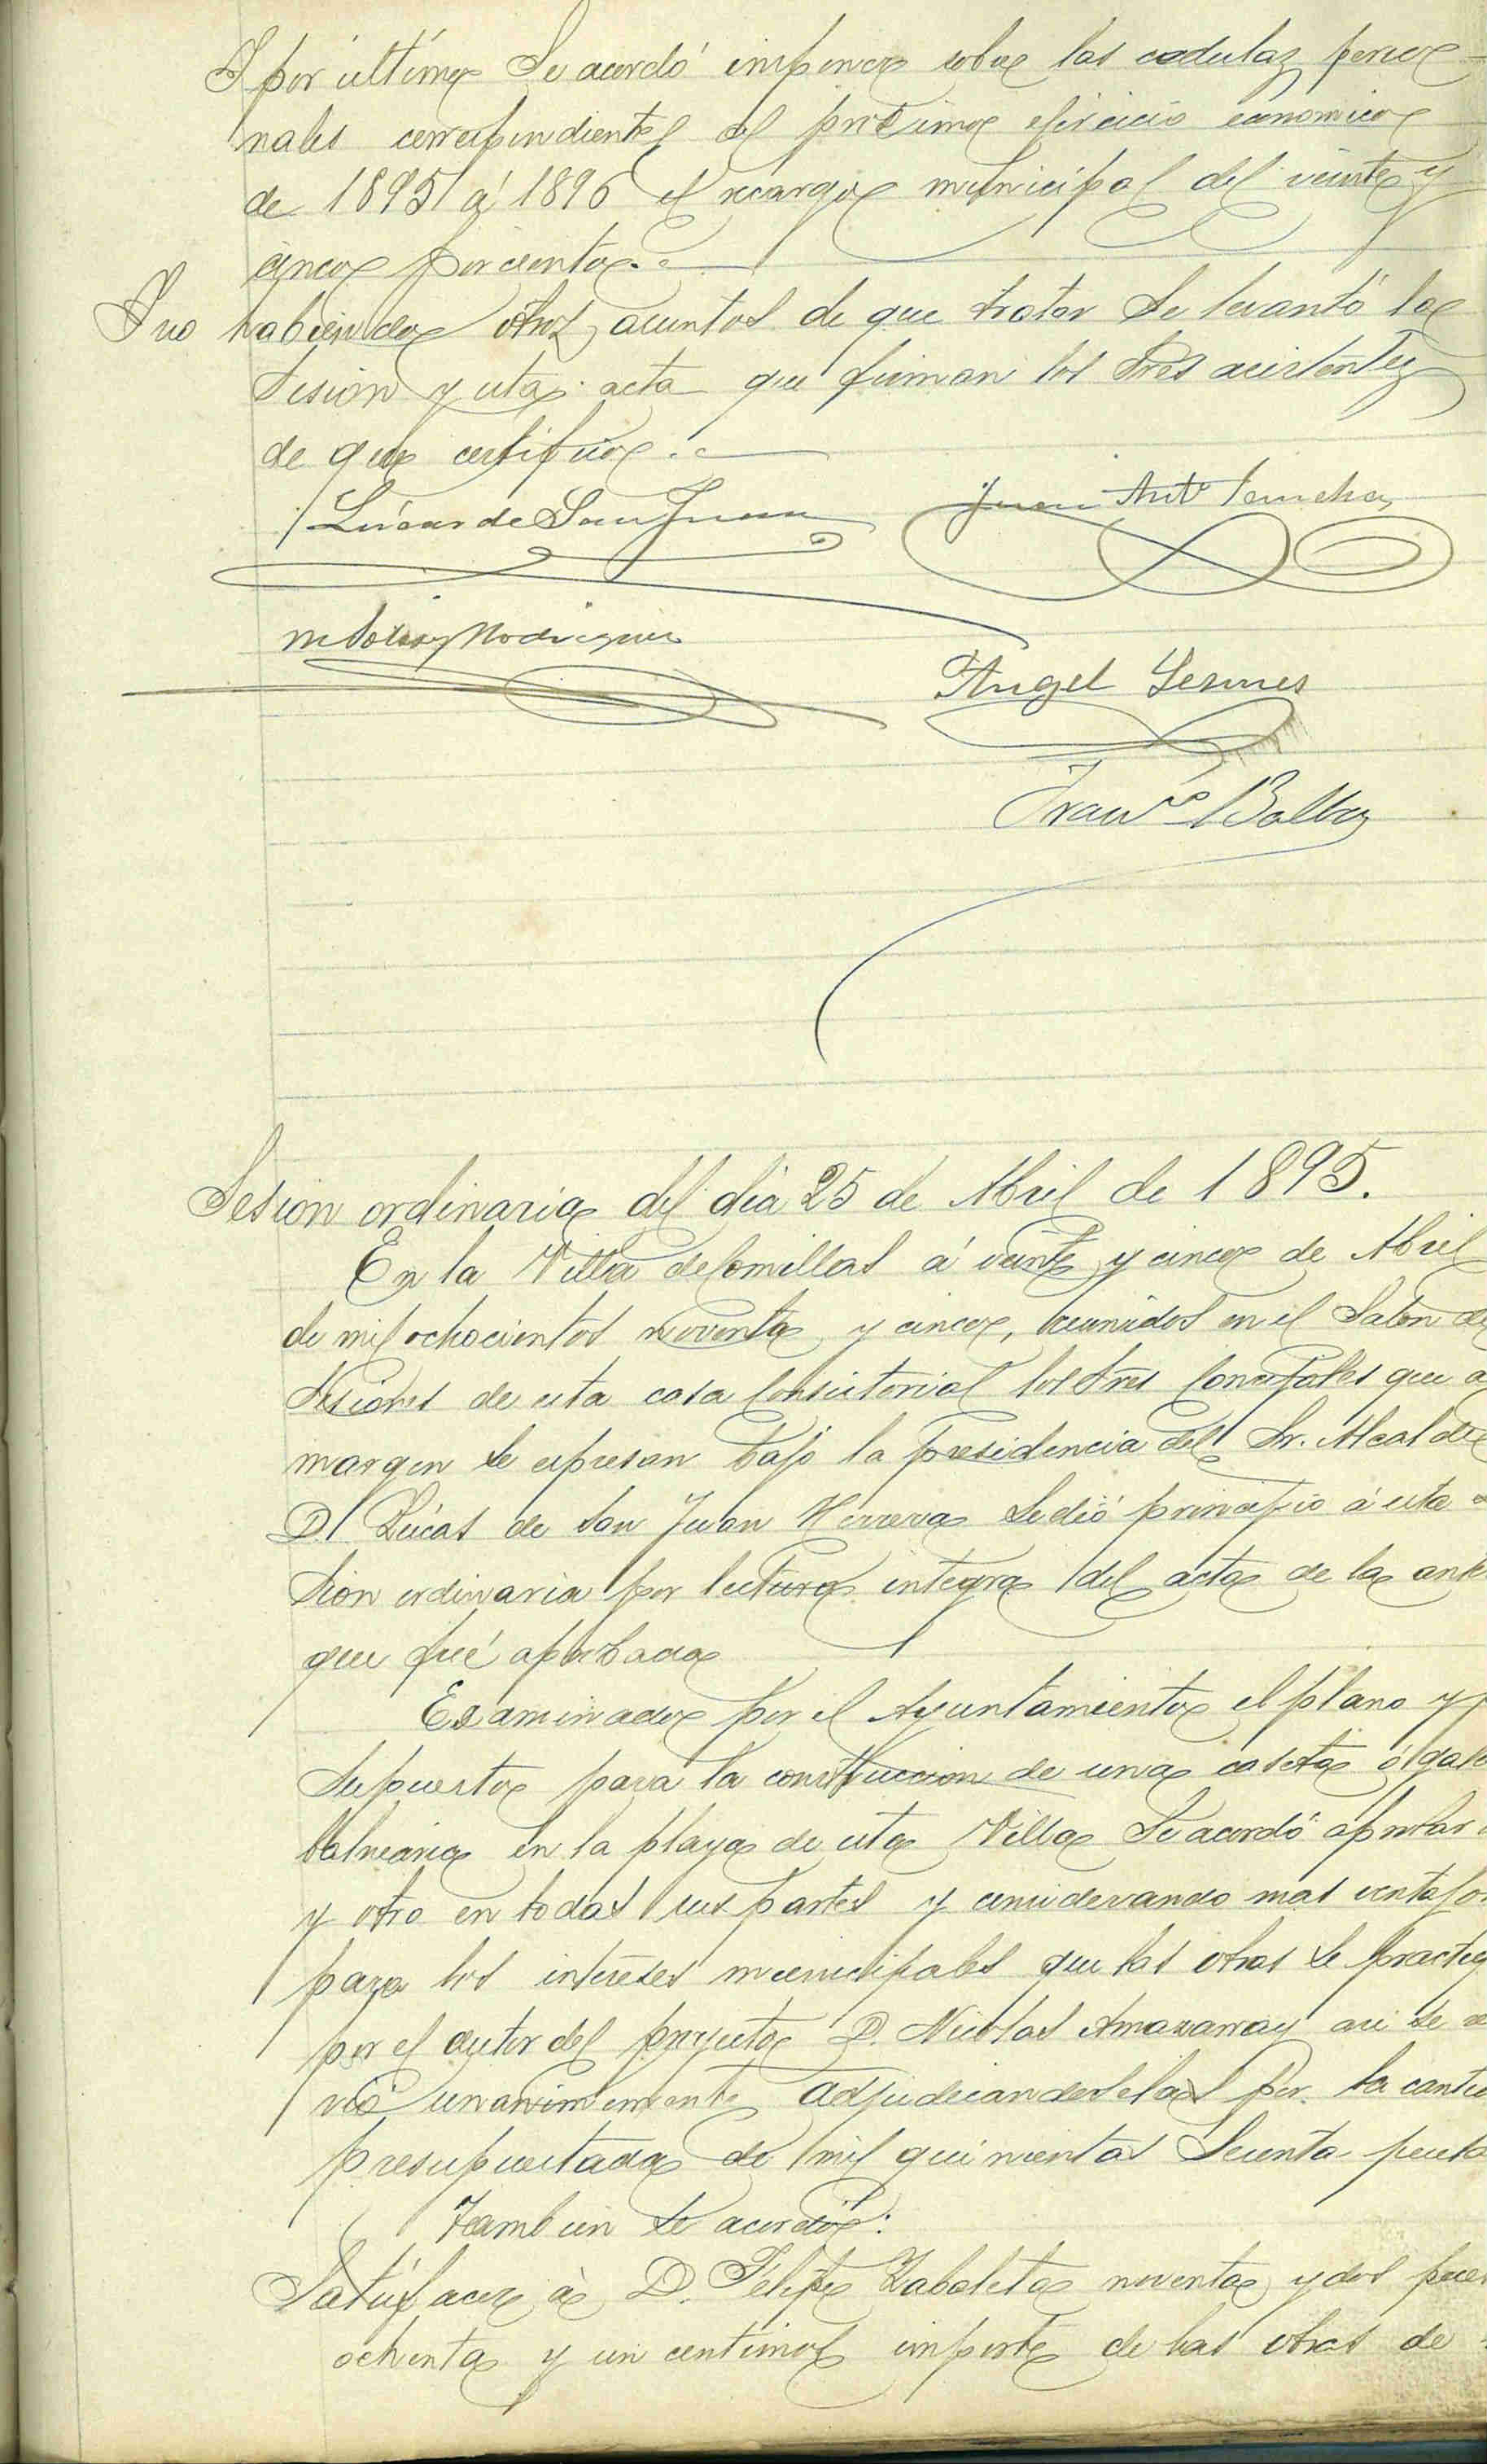 Y por último Se acordó imponer sobre las cedulas perso-
nales correspondientes al procsimo ejercicio económico
de 1895 a 1896 el recargo municipal del veinte y
cinco por ciento.
Y no habiendo otros asuntos de que tratar Se levantó la
Sesión y esta acta que firman los Sres asistentes
de que certifico.
Lúcas de San Juan
Juan Antº Sanchez
Rodriguez
Angel
Franco Balboa
Sesión ordinaria del día 25 de Abril de 1895.
En la Villa de Comillas á veinte y cinco de Abril
de mil ochocientos noventa y cinco, reunidos en el Salon de
Sesiones de esta casa Consistorial los Sres Concejales que a
margen se espresan bajo la presidencia del Sr. Alcalde
D. Lúcas de San Juan Herrera Se dió principio á esta
sion ordinaria por lectura integra del acta de la ante
que fué aprobada
Examinado por el Ayuntamiento el plano y
supuesto para la construccion de una caseta ó
balnearia en la playa de esta Villa Se acordó aprobar
y otro en todas sus partes y considerando mas ventajo
para los intereses municipales que las obras se practiq
por el autor del proyecto D. Nicolas Amazarray asi se
vió unanimemente adjudicandoselas por la canti
presupuestada de mil quinientas Sesenta peseta
Tambien se acordó:
Satisfacer á D. Felipe Zabaleta noventa y dos pese
ochenta y un centimos importe de las obras de